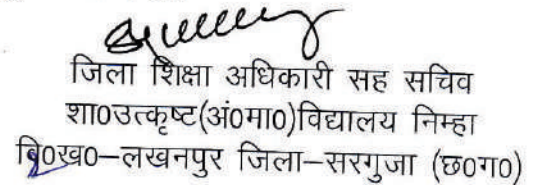 जिला शिक्षा अधिकारी सह सचिव
शा0उत्कृष्ट(अं0मा0)विद्यालय निम्हा
वि0ख0–लखनपुर जिला–सरगुजा (छ0ग0)